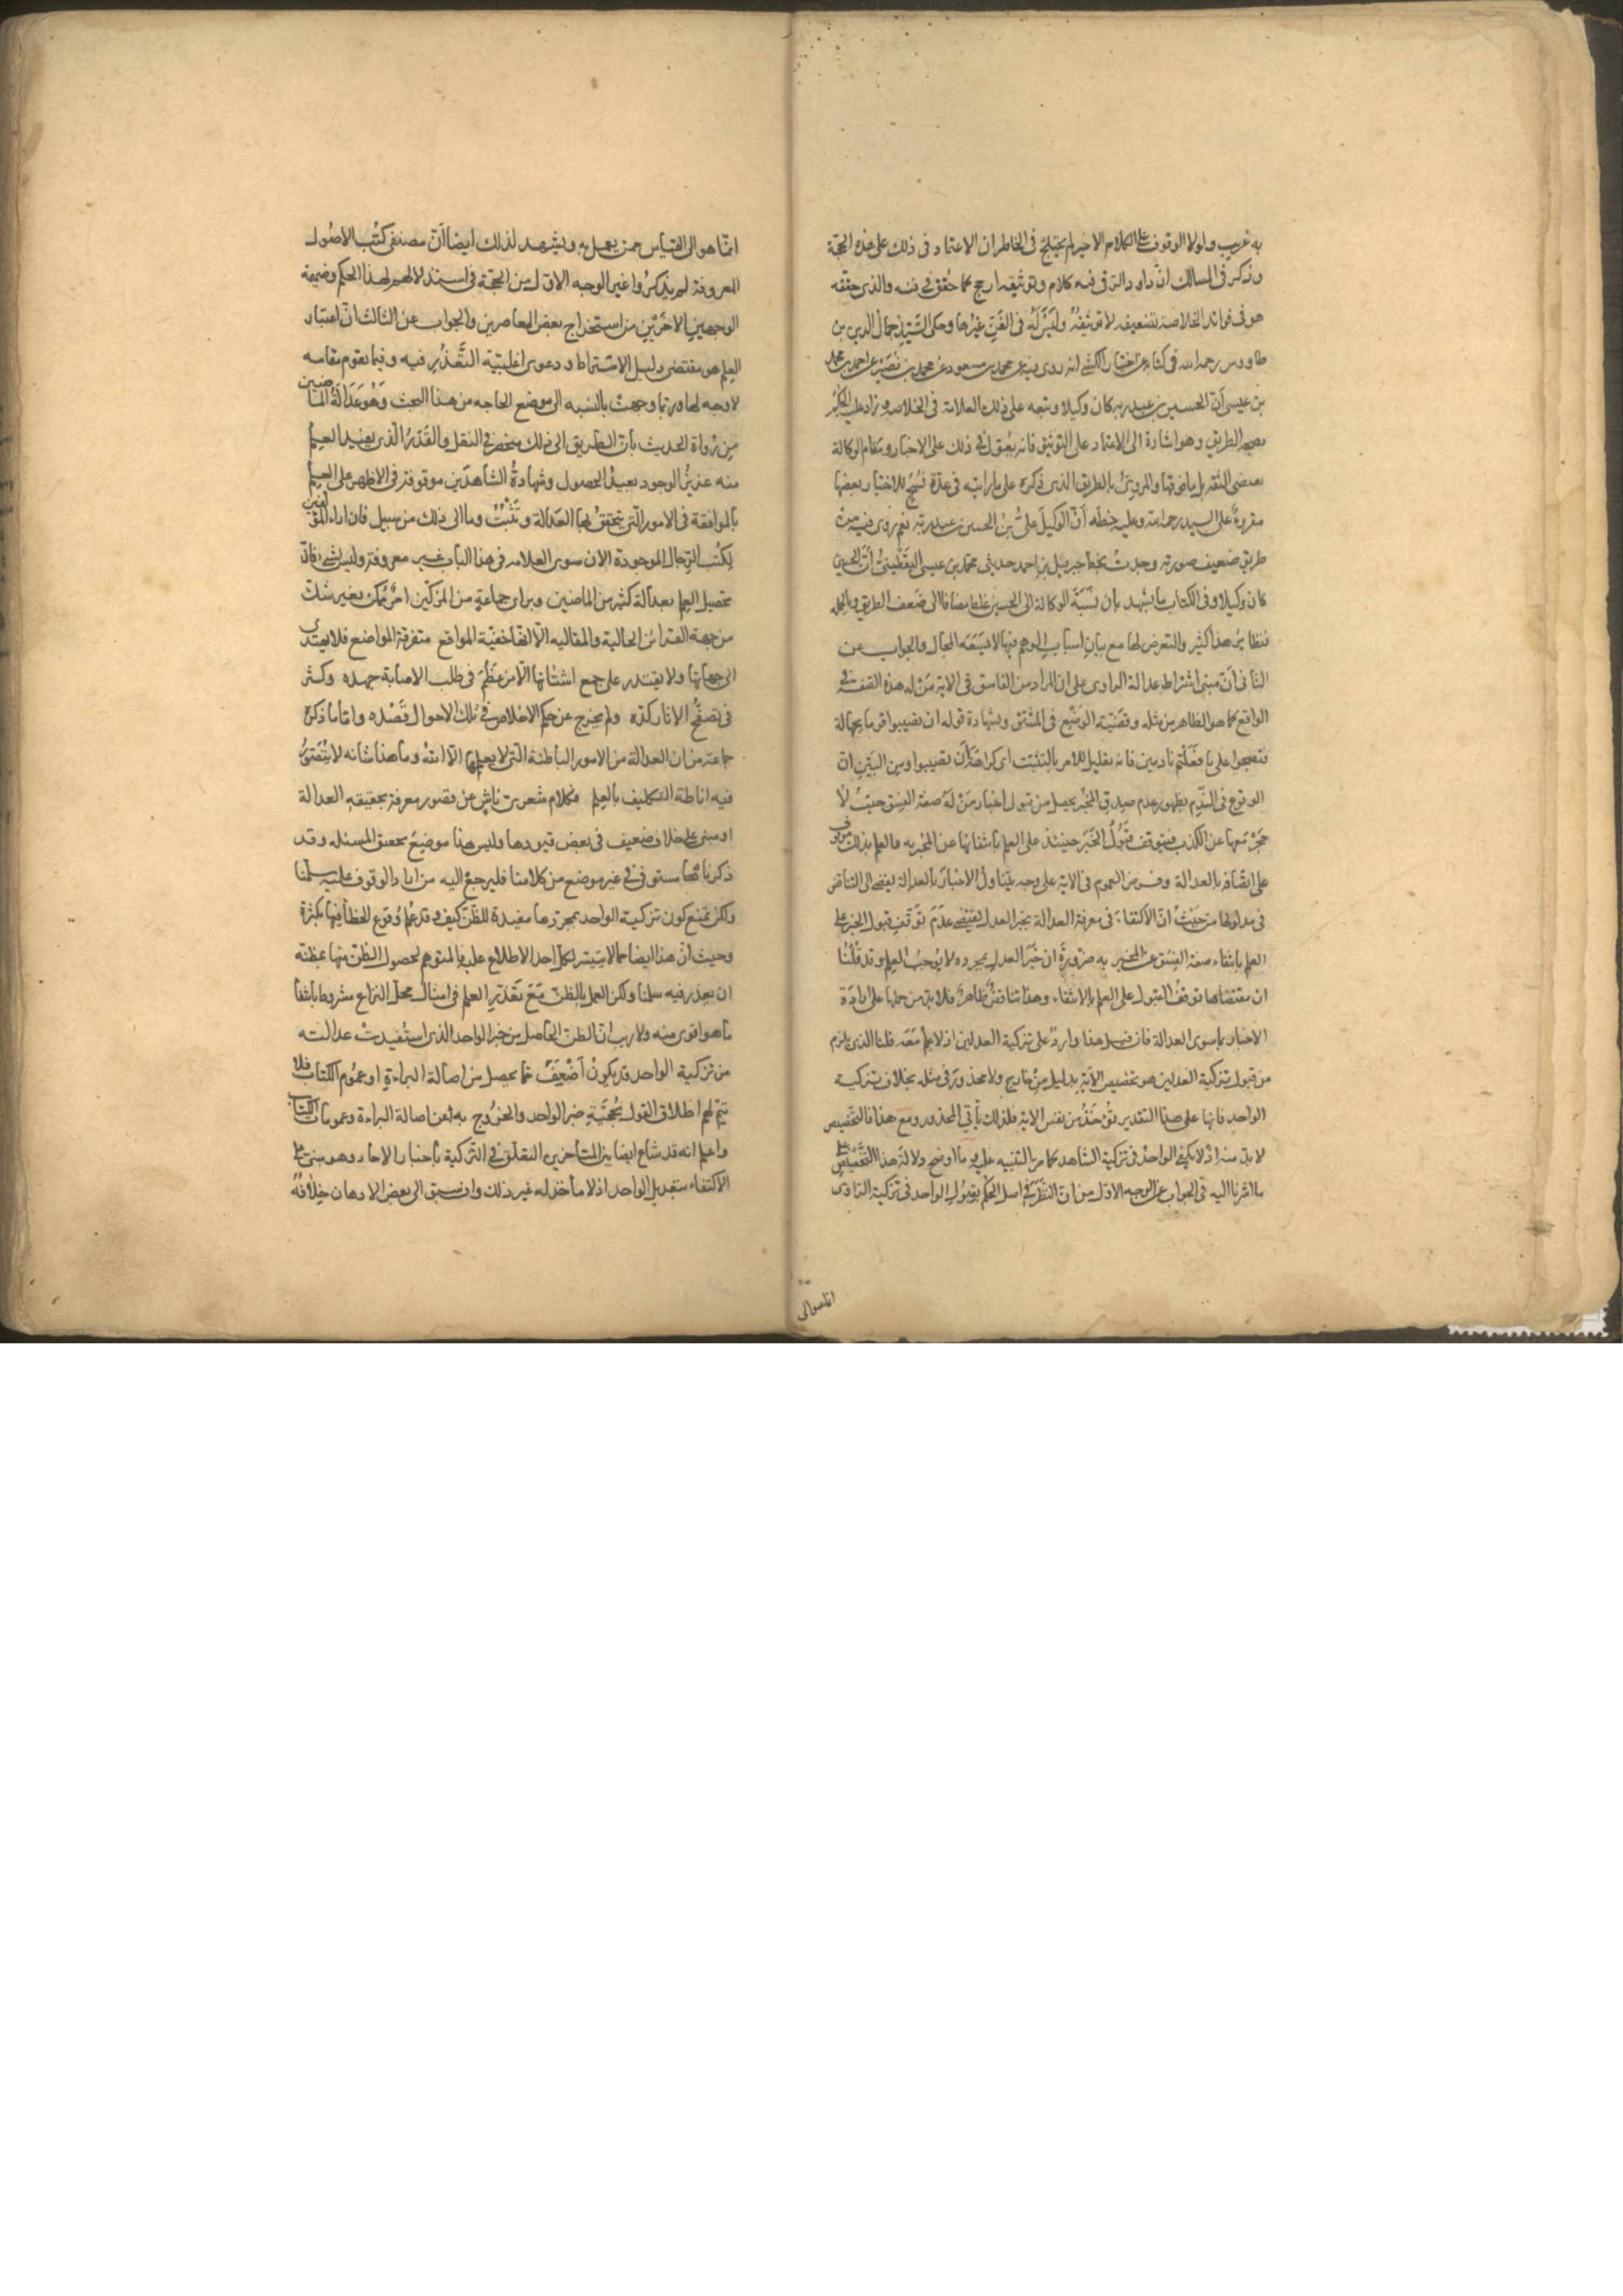 به غريب ولولا الوقوف على الكلام الاخير لم يختلج في الخاطر ان الاعتماد في ذلك على هذه الحجة
وذكر في المسالك ان داود الرقي فيه كلام وتوثيقه ارجح كما حقق في فنه والذي حققه
هو في فوائد الخلاصة تضعيفه لا توثيقه وليس له في الفن غيرها وحكى السيد جمال الدين بن
طاووس رحمه الله في كتابه عن اختيار الكشي انه روى فيه عن محمد بن مسعود عن محمد بن نصير عن احمد بن محمد
بن عيسى ان الحسين بن عبد ربه كان وكيلا وتبعه على ذلك العلامة في الخلاصه وزاد عليه الحكم
بصحه الطريق وهو اشارة الى الاعتماد على التوثيق فانه يعول في ذلك على الاخبار ومقام الوكالة
يقتضي الثقه بل ما فوقها والمروي بالطريق الذي ذكره على ما رايته في عدة نسخ للاختيار بعضها
مقروء على السيد رحمه الله وعليه خطه أن الوكيل علي بن الحسين بن عبد ربه نعم روى فيه من
طريق ضعيف صورته وجدت بخط جبرئيل بن احمد حدثني محمد بن عيسى اليقطيني أن الحسين
كان وكيلا وفي الكتاب ما يشهد بان نسبة الوكالة الى الحسين غلط مضافا الى ضعف الطريق وبالجمله
فنظائر هذا كثير والتعرض لها مع بيان اسباب الوهم فيها لا يسعه المجال والجواب عن
الثاني أن مبنى اشتراط عدالة الراوي على ان المراد من الفاسق في الاية من له هذه الصفة في
الواقع كما هو الظاهر من مثله وقضية الوضع في المشتق وبشهادة قوله ان تصيبوا قوما بجهالة
فتصبحوا على ما فعلتم نادمين فانه تعليل للامر بالتثبت اي كراهة أن تصيبوا ومن البين ان
الوقوع في الندم بظهور عدم صدق المخبر يحصل من قبول اخبار من له صفة الفسق حيث لا
حجر معها عن الكذب فيتوقف قبول الخبر حينئذ على العلم بانتفائها عن المخبر به والعلم بذلك موقوف
على اتصافه بالعدالة وفرض العموم في الاية على وجه يتناول الاخبار بالعدالة يفضي الى التناقض
في مدلولها من حيث ان الاكتفاء في معرفة العدالة بخبر العدل يقتضي عدم توقف قبول الخبر على
العلم بانتفاء صفة الفسق عن المخبر به ضرورة ان خبر العدل بمجرده لا يوجب العلم وقد قلنا
ان مقتضاها توقف القبول على العلم بالانتفاء وهذا تناقض ظاهر فلا بد من حملها على ارادة
الاخبار بما سوى العدالة فان قيل هذا وارد على تزكية العدلين اذ لا علم معه قلنا الذي يلزم
من قبول تزكية العدلين هو تخصيص الاية بدليل من خارج ولا محذور في مثله بخلاف تزكية
الواحد فانها على هذا التقدير تؤخذ من نفس الاية فلذلك يأتي المحذور ومع هذا فالتخصيص
لا بد منه اذ لا يكفي الواحد في تزكية الشاهد كما مر التنبيه عليه وما اوضح دلالة هذا التخصيص على
ما اشرنا اليه في الجواب عن الوجه الاول من ان النظر في اصل الحكم بقبول الواحد في تزكية الراوي
انما هو الى
انما هو الى القياس ممن يعمل به ويشهد لذلك ايضا أن مصنفي كتب الاصول
المعروفة لم يذكروا غير الوجه الاول من الحجة في استدلالهم لهذا الحكم وضميمة
الوجهين الاخرين من استخراج بعض المعاصرين والجواب عن الثالث ان اعتبار
العلم هو مقتضى دليل الاشتراط ودعوى اغلبية التعذر فيه وفيما يقوم مقامه
لا وجه لها وربما وجهت بالنسبه الى موضع الحاجه من هذا البحث وهو عدالة الماضين
من رواة الحديث بان الطريق الى ذلك منحصر في النقل والقدر الذي يفيد العلم
منه عزيز الوجود بعيد الحصول وشهادة الشاهدين موقوفة في الاظهر على العلم
بالموافقة في الامور التي يتحقق لها العدالة وتثبت وما الى ذلك من سبيل فان اراء المؤلفين
لكتب الرجال الموجودة الان سوى العلامه في هذا الباب غير معروفة وليس بشيء فان
تحصيل العلم بعدالة كثير من الماضين وبراي جماعة من المزكين امر ممكن بغير شك
من جهة القرائن الحالية والمقاليه الا انها خفية المواقع متفرقة المواضع فلا يهتدي
الى جهاتها ولا يقتدر على جمع اشتاتها الا من عظم في طلب الاصابة جهده وكثر
في تصفح الاثار كده ولم يخرج عن حكم الاخلاص في تلك الاحوال قصده واما ما ذكره
جماعة من ان العدالة من الامور الباطنة التي لا يعلمها الا الله وما هذا شانه لا يتصور
فيه اناطة التكليف بالعلم فكلام شعري ناش عن قصور معرفة بحقيقة العدالة
او مبني على خلاف ضعيف في بعض قيودها وليس هذا موضع تحقيق المسئله وقد
ذكرناها مستوفى في غير موضع من كلامنا فليرجع اليه من اراد الوقوف عليه سلمنا
ولكن نمنع كون تزكية الواحد بمجردها مفيدة للظن كيف وقد علم وقوع الخطأ فيها بكثرة
وحيث أن هذا ايضا مما لا يتيسر لكل احد الاطلاع عليه فالمتوهم لحصول الظن منها بمظنة
ان يعذر فيه سلمنا ولكن العمل بالظن مع تعذر العلم في امثال محل النزاع مشروط بانتفأ
ما هو اقوى منه ولا ريب ان الظن الحاصل من خبر الواحد الذي استفيدت عدالته
من تزكية الواحد قد يكون أضعف مما يحصل من اصالة البراءة او عموم الكتاب فلا
يتم لهم اطلاق القول بحجية خبر الواحد والخروج به عن اصالة البراءة وعمومات الكتاب
واعلم انه قد شاع ايضا بين المتأخرين التعلق في التزكية باخبار الاحاد وهو مبني على
الاكتفاء بتعديل الواحد اذ لا مأخذ له غير ذلك وان سبق الى بعض الاذهان خلافه